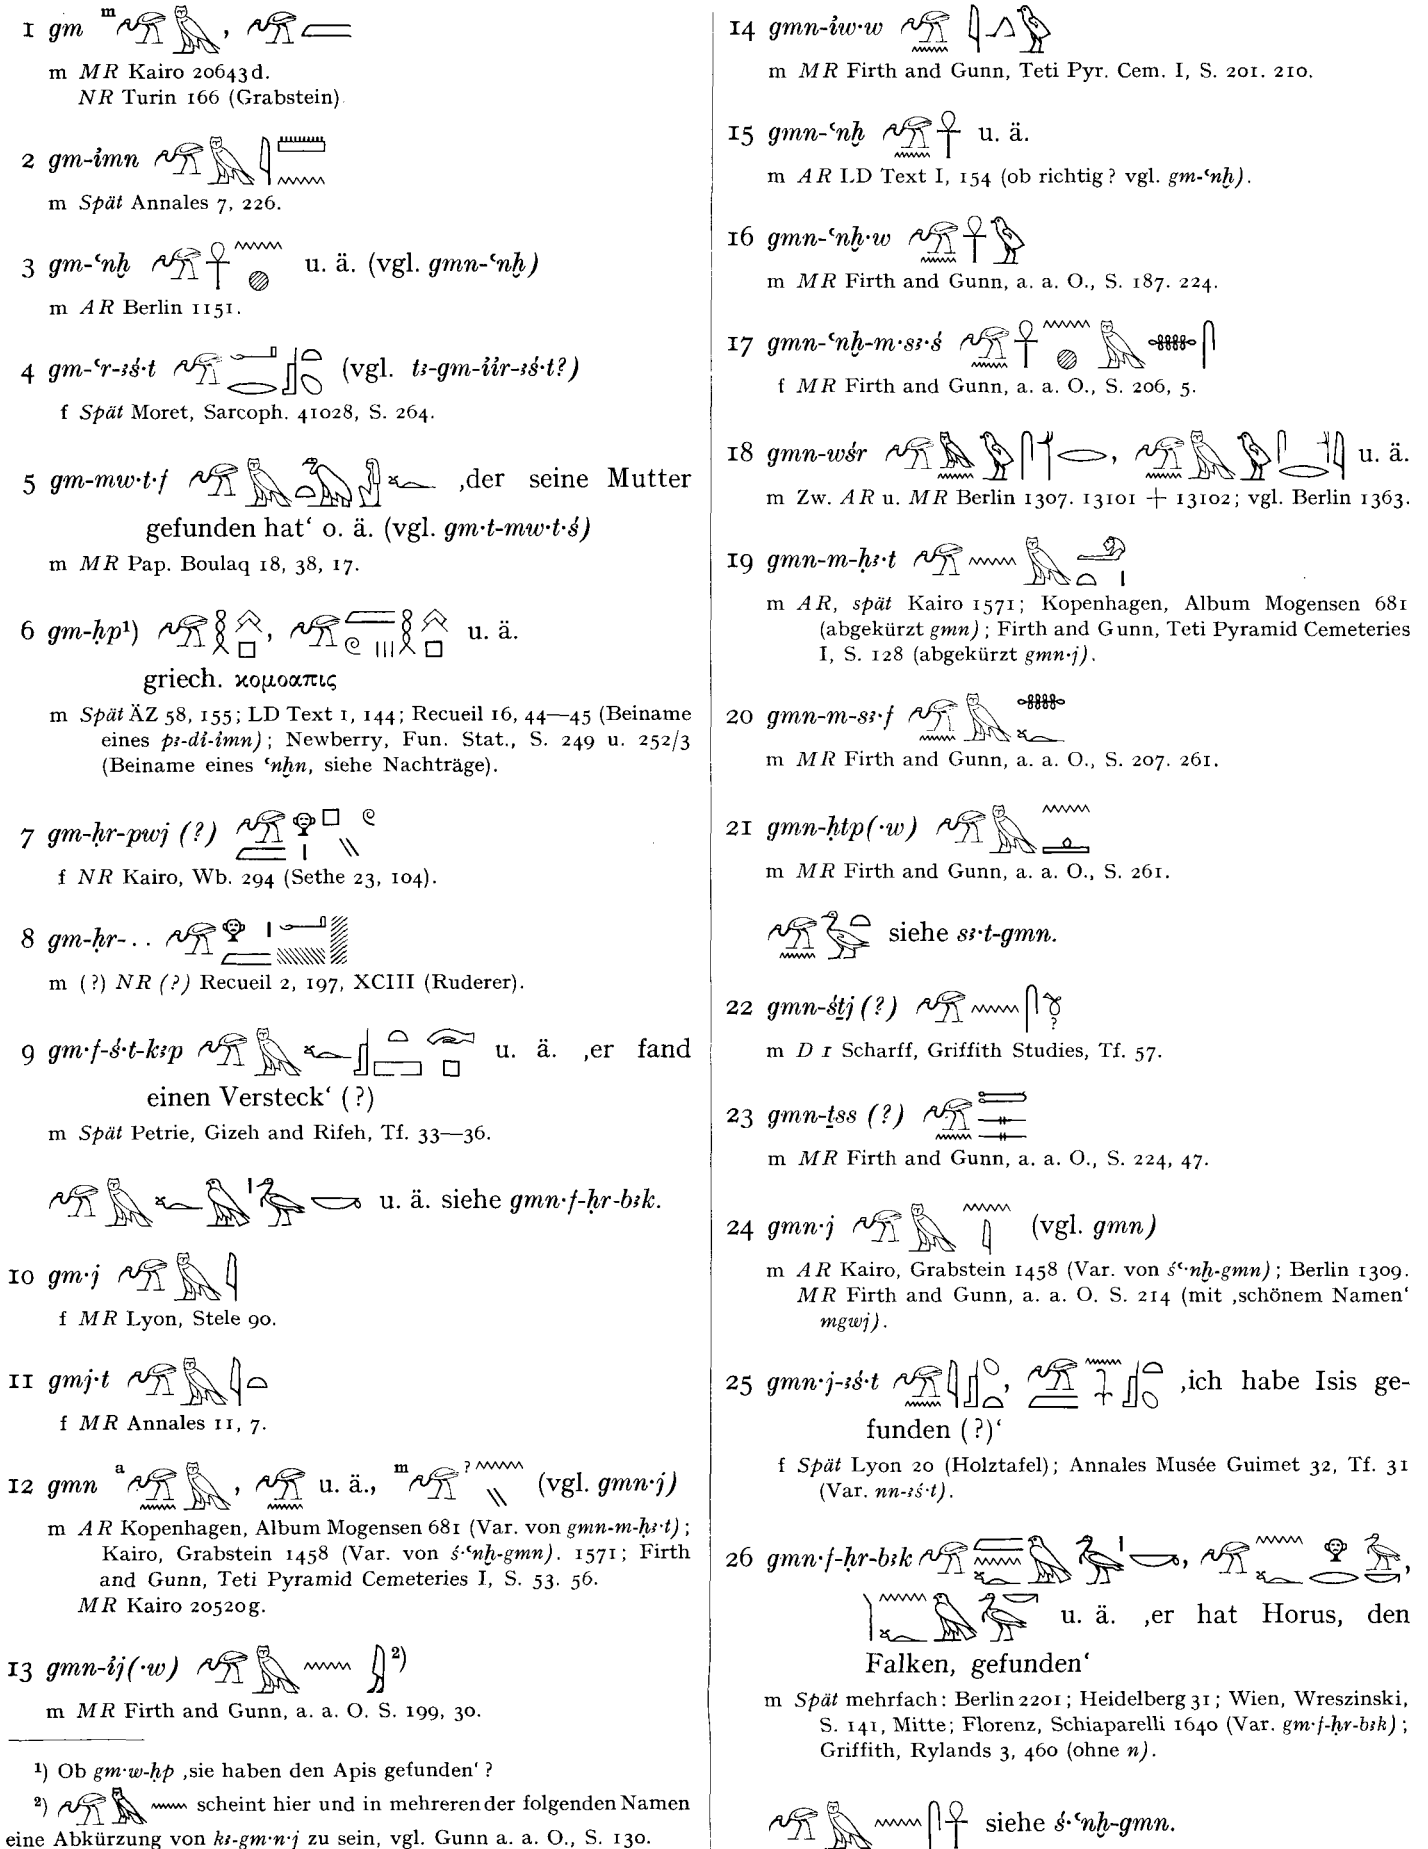 1 gm ᵐ𓅠𓅓, 𓅠𓐝
m MR Kairo 20643d.
NR Turin 166 (Grabstein)
2 gm-i҆mn 𓅠𓅓𓇋𓏠𓈖
m Spät Annales 7, 226.
3 gm-ꜥnḫ 𓅠𓋹𓈖𓐍 u. ä. (vgl. gmn-ꜥnḫ)
m AR Berlin 1151.
4 gm-ꜥr-ꜣś·t (vgl. tꜣ-gm-i҆i҆r-ꜣś·t?)
f Spät Moret, Sarcoph. 41028, S. 264.
5 gm-mw·t·f ‚der seine Mutter
gefunden hat‘ o. ä. (vgl. gm·t-mw·t·ś)
m MR Pap. Boulaq 18, 38, 17.
6 gm-ḥp¹) u. ä.
griech. κομοαπις
m Spät ÄZ 58, 155; LD Text I, 144; Recueil 16, 44—45 (Beiname
eines pꜣ-di҆-i҆mn); Newberry, Fun. Stat., S. 249 u. 252/3
(Beiname eines ꜥnḫn, siehe Nachträge).
7 gm-ḥr-pwj (?)
f NR Kairo, Wb. 294 (Sethe 23, 104).
8 gm-ḥr-. .
m (?) NR (?) Recueil 2, 197, XCIII (Ruderer).
9 gm·f-ś·t-kꜣp u. ä. ‚er fand
einen Versteck‘ (?)
m Spät Petrie, Gizeh and Rifeh, Tf. 33—36.
u. ä. siehe gmn·f-ḥr-bꜣk.
10 gm·j 𓅠𓅓𓇋
f MR Lyon, Stele 90.
11 gmj·t 𓅠𓅓𓇋𓏏
f MR Annales 11, 7.
12 gmn ᵃ𓅠𓈖𓅓, 𓅠𓈖 u. ä., ᵐ𓅠?𓈖𓏭 (vgl. gmn·j)
m AR Kopenhagen, Album Mogensen 681 (Var. von gmn-m-ḥꜣ·t);
Kairo, Grabstein 1458 (Var. von ś·ꜥnḫ-gmn). 1571; Firth
and Gunn, Teti Pyramid Cemeteries I, S. 53. 56.
MR Kairo 20520g.
13 gmn-i҆j(·w) 𓅠𓅓𓈖𓇍²)
m MR Firth and Gunn, a. a. O. S. 199, 30.
¹) Ob gm·w-ḥp ‚sie haben den Apis gefunden‘ ?
²) 𓅠𓅓𓈖 scheint hier und in mehreren der folgenden Namen
eine Abkürzung von kꜣ-gm·n·j zu sein, vgl. Gunn a. a. O., S. 130.
14 gmn-i҆w·w 𓅠𓈖𓇋𓂻𓅱
m MR Firth and Gunn, Teti Pyr. Cem. I, S. 201. 210.
15 gmn-ꜥnḫ 𓅠𓈖𓋹 u. ä.
m AR LD Text I, 154 (ob richtig? vgl. gm-ꜥnḫ).
16 gmn-ꜥnḫ·w 𓅠𓈖𓋹𓅱
m MR Firth and Gunn, a. a. O., S. 187. 224.
17 gmn-ꜥnḫ-m·sꜣ·ś
f MR Firth and Gunn, a. a. O., S. 206, 5.
18 gmn-wśr u. ä.
m Zw. AR u. MR Berlin 1307. 13101 + 13102; vgl. Berlin 1363.
19 gmn-m-ḥꜣ·t 𓅠𓈖𓅓𓄂𓏏𓏤
m AR, spät Kairo 1571; Kopenhagen, Album Mogensen 681
(abgekürzt gmn); Firth and Gunn, Teti Pyramid Cemeteries
I, S. 128 (abgekürzt gmn·j).
20 gmn-m-sꜣ·f
m MR Firth and Gunn, a. a. O., S. 207. 261.
21 gmn-ḥtp(·w) 𓅠𓅓𓈖𓊵
m MR Firth and Gunn, a. a. O., S. 261.
𓅠𓈖𓅭𓏏 siehe sꜣ·t-gmn.
22 gmn-śṯj (?)
m D 1 Scharff, Griffith Studies, Tf. 57.
23 gmn-ṯss (?)
m MR Firth and Gunn, a. a. O., S. 224, 47.
24 gmn·j 𓅠𓅓𓈖𓇋 (vgl. gmn)
m AR Kairo, Grabstein 1458 (Var. von śꜥ·nḫ-gmn); Berlin 1309.
MR Firth and Gunn, a. a. O. S. 214 (mit ‚schönem Namen‘
mgwj).
25 gmn·j-ꜣś·t ‚ich habe Isis ge-
funden (?)‘
f Spät Lyon 20 (Holztafel); Annales Musée Guimet 32, Tf. 31
(Var. nn-ꜣś·t).
26 gmn·f-ḥr-bꜣk
u. ä. ‚er hat Horus, den
Falken, gefunden‘
m Spät mehrfach: Berlin 2201; Heidelberg 31; Wien, Wreszinski,
S. 141, Mitte; Florenz, Schiaparelli 1640 (Var. gm·f-ḥr-bꜣk);
Griffith, Rylands 3, 460 (ohne n).
𓅠𓅓𓈖𓋴𓋹 siehe ś·ꜥnḫ-gmn.